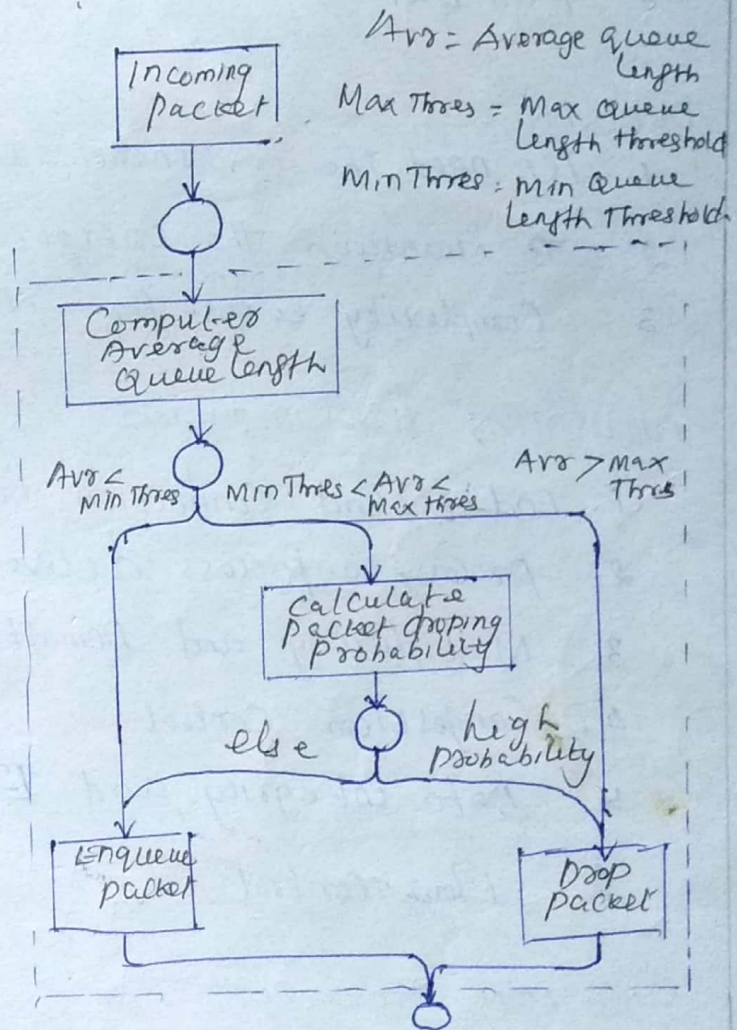 Avr = Average queue
length
Max Thres = Max Queue
length threshold
Min Thres = Min Queue
Length Threshold.
Incoming
Packet
Computer
Average
Queue length
Avr <
Min Thres
Min Thres < Avr <
Max thres
Avr > Max
Thres
Calculate
Packet droping
Probability
else
high
Probability
Enqueue
packet
Drop
Packet